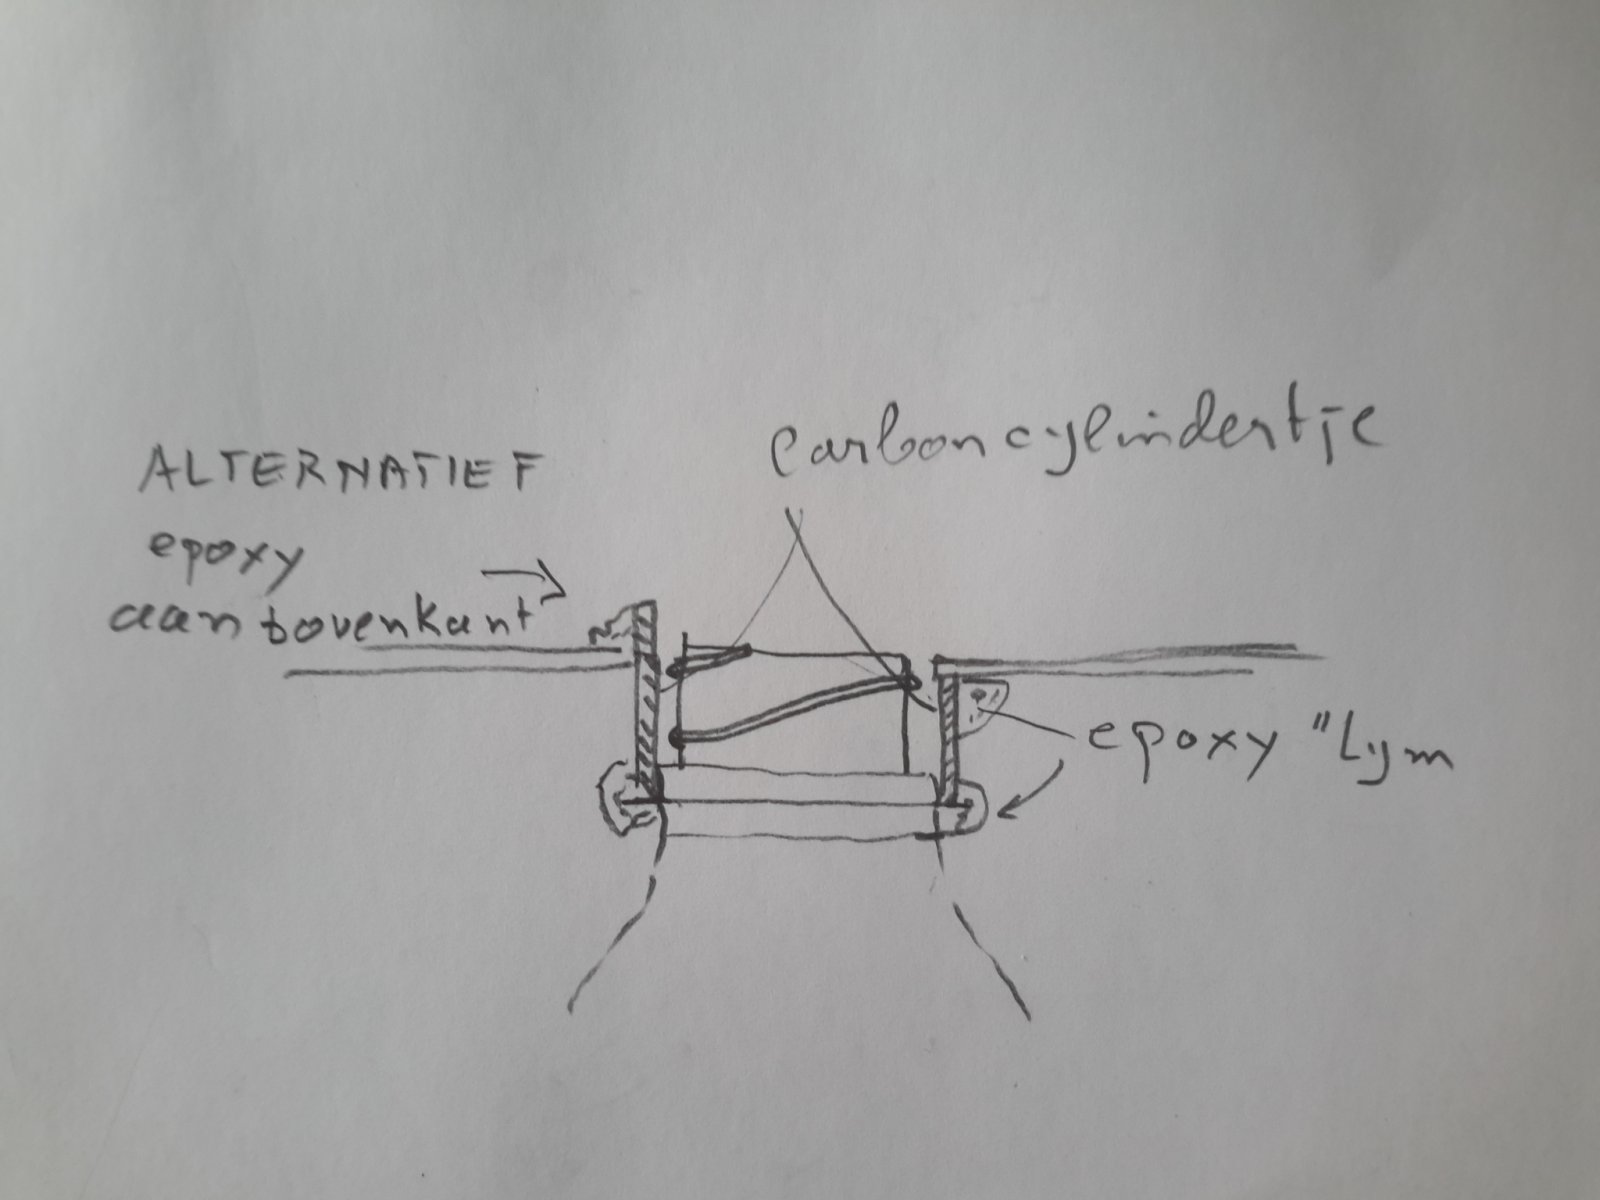 ALTERNATIEF
epoxy
aan bovenkant
carboncylindertje
epoxy "Lym